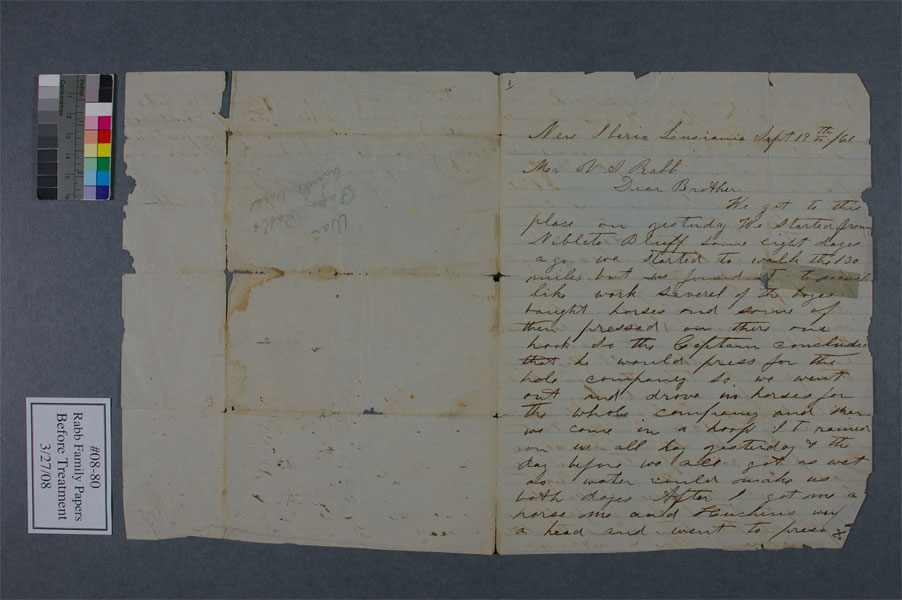 1
New Iberia Lousiania Sept 19th /61
Mr V S Rabb
Dear Brother
We got to this
place on yesterday We started from
Niblets Bluff some eight dayes
ago we started to walk the 130
miles but we found it to much
like work Severel of the boyes
baught horses and some of
them pressed on there one
hook So the Captain conclude
that he would press for the
hole company so we went
out and drove in horses for
the whole company and then
we came in a It rained
on us all day yesterday & the
day before we all got as wet
as water could make us
both dayes After I got me a
horse me and Huchins wer
a head and went to press
War
Rabb
Papers
#08-80
Rabb Family Papers
Before Treatment
3/27/08
Centimetres